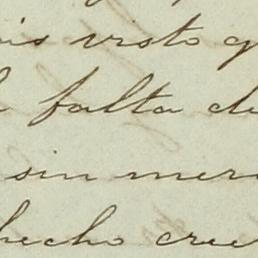 is visto q
falta de
sin mer
hecho cree